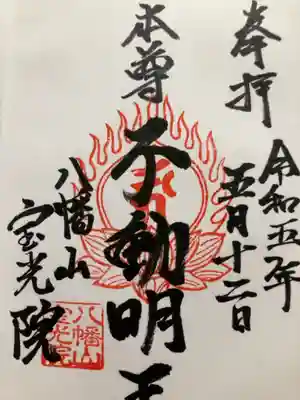 奉拝
令和五年
五月十二日
本尊
不動明王
八幡山
宝光院
八幡山
宝光院